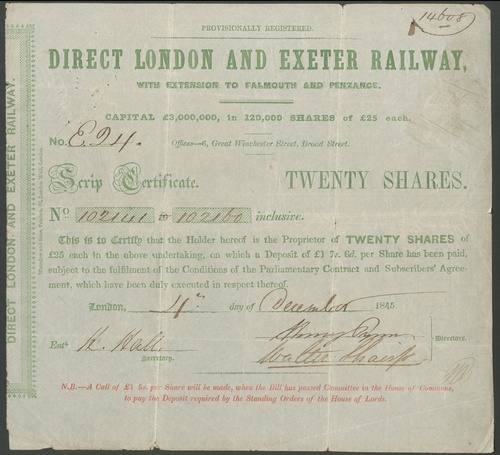 PROVISIONALLY REGISTERED.
14608
DIRECT LONDON AND EXETER RAILWAY,
WITH EXTENSION TO FALMOUTH AND PENZANCE.
CAPITAL £3,000,000, in 120,000 SHARES of £25 each.
No. E94. Offices—6, Great Winchester Street, Broad Street.
Scrip Certificate. TWENTY SHARES.
No 102141 to 102160 inclusive.
This is to Certify that the Holder hereof is the Proprietor of TWENTY SHARES of
£25 each in the above undertaking, on which a Deposit of £1 7s. 6d. per Share has been paid,
subject to the fulfilment of the Conditions of the Parliamentary Contract and Subscribers' Agree-
ment, which have been duly executed in respect thereof.
London, 4th day of December 1845.
Entd K. Hall
Secretary.
Directors.
N.B.—A Call of £1 5s. per Share will be made, when the Bill has passed Committee in the House of Commons,
to pay the Deposit required by the Standing Orders of the House of Lords.
DIRECT LONDON AND EXETER RAILWAY.